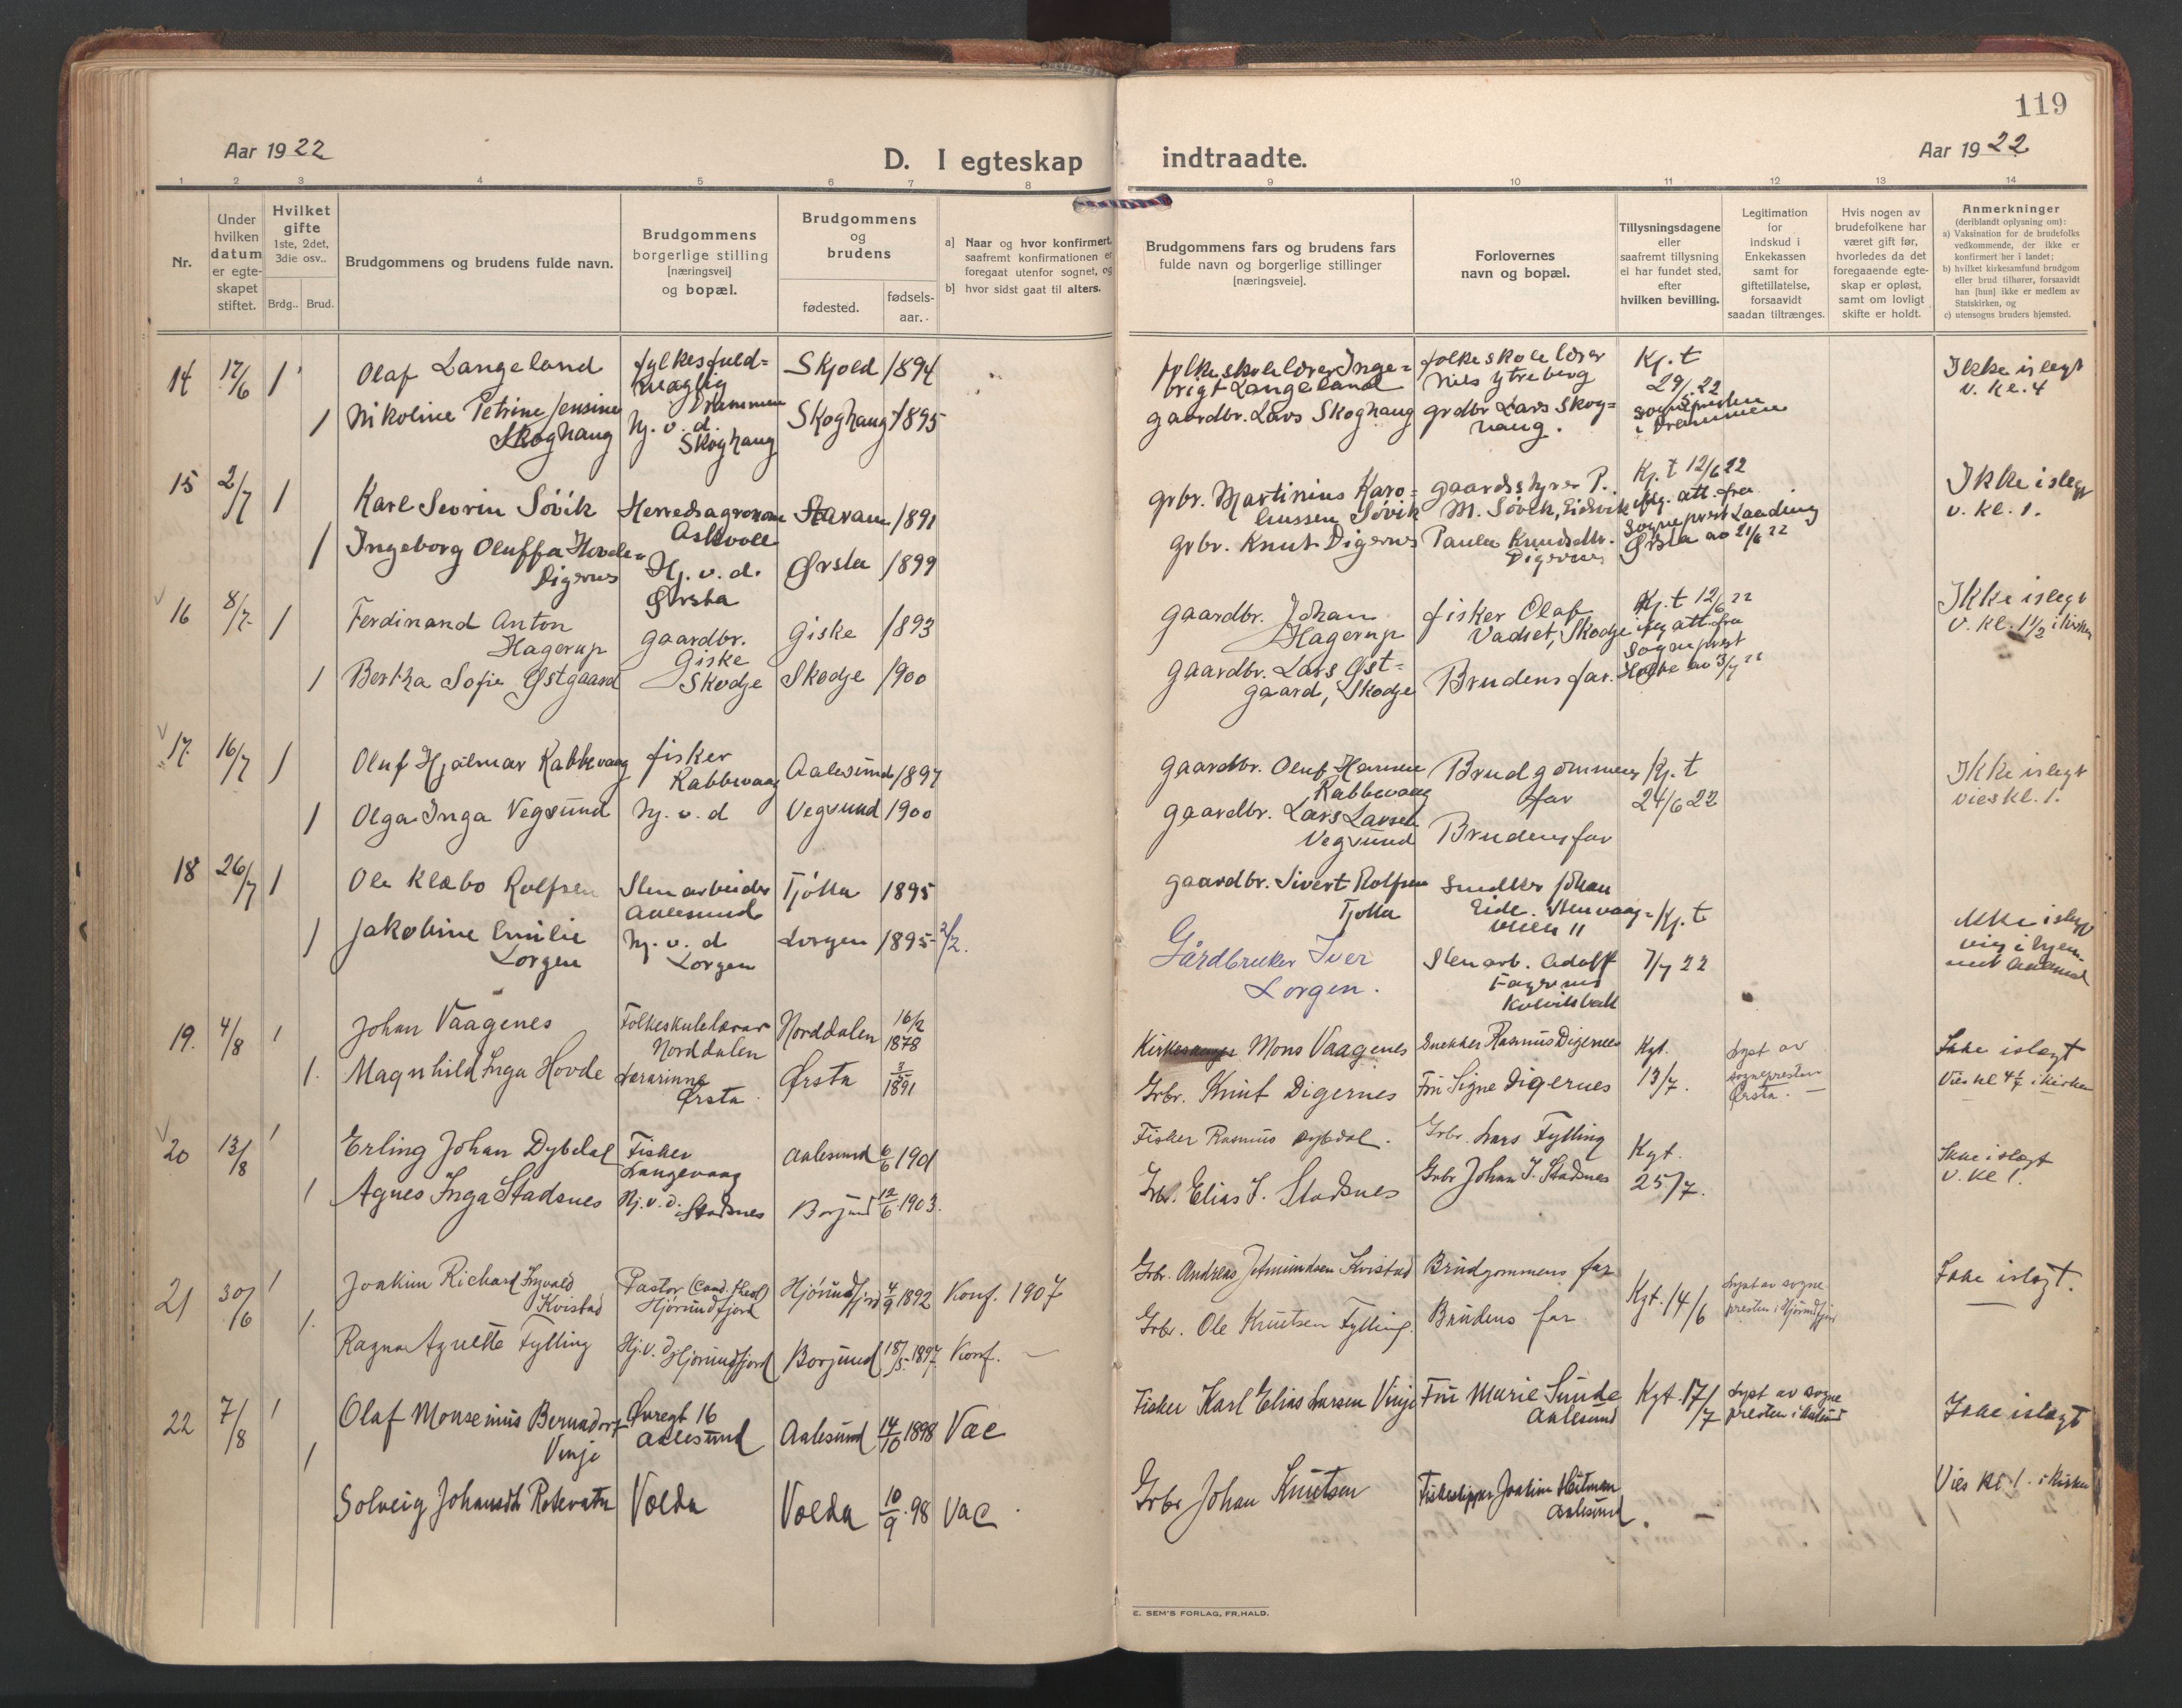 119
Aar 1922
D. I egteskap indtraadte.
Aar 1922
1 2 3 4 5 6 7 8 9 10 11 12 13 14
Nr.
Under hvilken datum er egte-skapet stiftet.
Hvilket gifte 1ste, 2det, 3die osv..
Brdg.. Brud.
Brudgommens og brudens fulde navn.
Brudgommens borgerlige stilling [næringsvei] og bopæl.
Brudgommens og brudens
fødested.
fødsels-aar.
a] Naar og hvor konfirmert, saafremt konfirmationen er foregaat utenfor sognet, og
b] hvor sidst gaat til alters.
Brudgommens fars og brudens fars fulde navn og borgerlige stillinger [næringsveie].
Forlovernes navn og bopæl.
Tillysningsdagene eller saafremt tillysning ei har fundet sted, efter hvilken bevilling.
Legitimation for indskud i Enkekassen samt for giftetillatelse, forsaavidt saadan tiltrænges.
Hvis nogen av brudefolkene har været gift før, hvorledes da det foregaaende egte-skap er opløst, samt om lovligt skifte er holdt.
Anmerkninger (deriblandt oplysning om):
a) Vaksination for de brudefolks vedkommende, der ikke er konfirmert her i landet;
b) hvilket kirkesamfund brudgom eller brud tilhører, forsaavidt han [hun] ikke er medlem av Statskirken, og
c) utensogns bruders hjemsted.
14 17/6 1 Olaf Langeland fylkesfuld=mægtig Drammen Skjold 1894
folkeskolelærer Inge=brigt Langeland folkeskolelærer Nils Ytreberg Kj. t 29/5 22 sognepresten i Drammen Ikke i slegt v. kl. 4
1 Nikoline Petrine Jensine Skoghaug hj. v. d. Skoghaug Skoghaug 1895
gaardbr. Lars Skoghaug grdbr Lars Skog=haug.
15 2/7 1 Karl Sevrin Søvik Herredsagronom Askvoll Stavam 1891
grbr. Martinius Karo=liussen Søvik gaardsstyrer P. M. Søvik, Eidsvik Kj. t 12/6 22 iflg. att. fra sogneprest Ørsta av 21/6 22 Ikke i slegt v. kl. 1.
1 Ingeborg Oluffa Hovde=Digernes Hj. v. d. Ørsta Ørsta 1899
grbr. Knut Digernes Paula Knudsdtr. Digernes
16 8/7 1 Ferdinand Anton Hagerup gaardbr. Giske Giske 1893
gaardbr. Johan Hagerup fisker Olaf Vadset, Skodje Kj. t 12/6 22 iflg att. fra sogneprest av 3/7 22 Ikke i slegt v. kl. 1 1/2 i kirken
1 Bertha Sofie Østgaard Skodje Skodje 1900
gaardbr. Lars Øst=gaard, Skodje Brudens far.
17. 16/7 1 Oluf Hjalmar Rabbevaag fisker Rabbevaag Aalesund 1897
gaardbr. Oluf Hansen Rabbevaag Brudgommens far Kj. t 24/6 22 Ikke i slegt vies kl. 1.
1 Olga Inga Vegsund hj. v. d Vegsund 1900
gaardbr. Lars Larsen Vegsund Brudens far
18 26/7 1 Ole Klæbo Rolfsen Stenarbeider Aalesund Tjøtta 1895
gaardbr. Sivert Rolfsen Tjøtta Snedker Johan Eide. Kj. t 7/7 22 Ikke i slegt
1 Jakobine Emilie Lorgen hj. v. d Lorgen Lorgen 1895 2/2.
Gårdbruker Iver Lorgen. Stenarb. Adolf Fagernes
19. 4/8 1 Johan Vaagenes Folkeskulelærar Norddalen Norddalen 16/2 1878
Mons Vaagenes Snekker Rasmus Digernes Kgt. 13/7. Lyst av sognepresten Ørsta. Ikke i slegt Vies kl 4 1/2 i kirken
1. Magnhild Inga Hovde Lærarinne Ørsta Ørsta 3/5 1891
Grbr. Knut Digernes Frk Signe Digernes
20 13/8 1 Erling Johan Dybdal Fisker Langevaag Aalesund 6/6 1901
Fisker Rasmus Dybdal. Grbr. Lars Fylling Kgt. 25/7. Ikke i slegt v. kl 1.
1 Agnes Inga Stadsnes Hj. v. d. Stadsnes Borgund 12/6 1903.
Grbr. Elias J. Stadsnes Grbr Johan J. Stadsnes
21 30/6 1 Joakim Richard Ingvald Kvistad Pastor (Cand. theol) Hjørundfjord Hjørundfjord 4/9 1892 Konf. 1907
Grbr. Andreas Kvistad Brudgommens far Kgt. 14/6 Lyst av sogne-presten i Hjørundfjord Ikke i slegt.
1. Ragna Agnethe Fylling Hj. v. d Hjørundfjord Borgund 18/5 1897. Konf. —
Grbr. Ole Knutsen Fylling. Brudens far
22 7/8 1 Olaf Monsenius Bernadorf Vinje Øvregt 16 Aalesund Aalesund 14/10 1898 Vac
Fisker Karl Elias Larsen Vinje Frk Marie Sunde Aalesund Kgt. 17/7 Lyst av sogne presten i Aalesund Ikke i slegt
1 Solveig Johansdtr Rotevatn Volda Volda 10/9 98 Vac
Grbr Johan Knutsen Fiskeskipper Joakim Heitman Aalesund. — Vies kl. 1 i kirken
E. SEM'S FORLAG, FR.HALD.